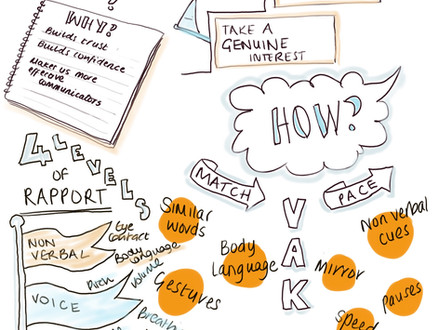 WHY?
Builds trust
Builds confidence
Makes us more
effective
communicators
TAKE A
GENUINE
INTEREST
HOW?
MATCH
PACE
VAK
4 LEVELS
OF
RAPPORT
NON
VERBAL
Eye
Contact
Body Language
VOICE
Pitch
Volume
Similar
words
Body
Language
Gestures
Mirror
Non verbal
cues
Pauses
Speed